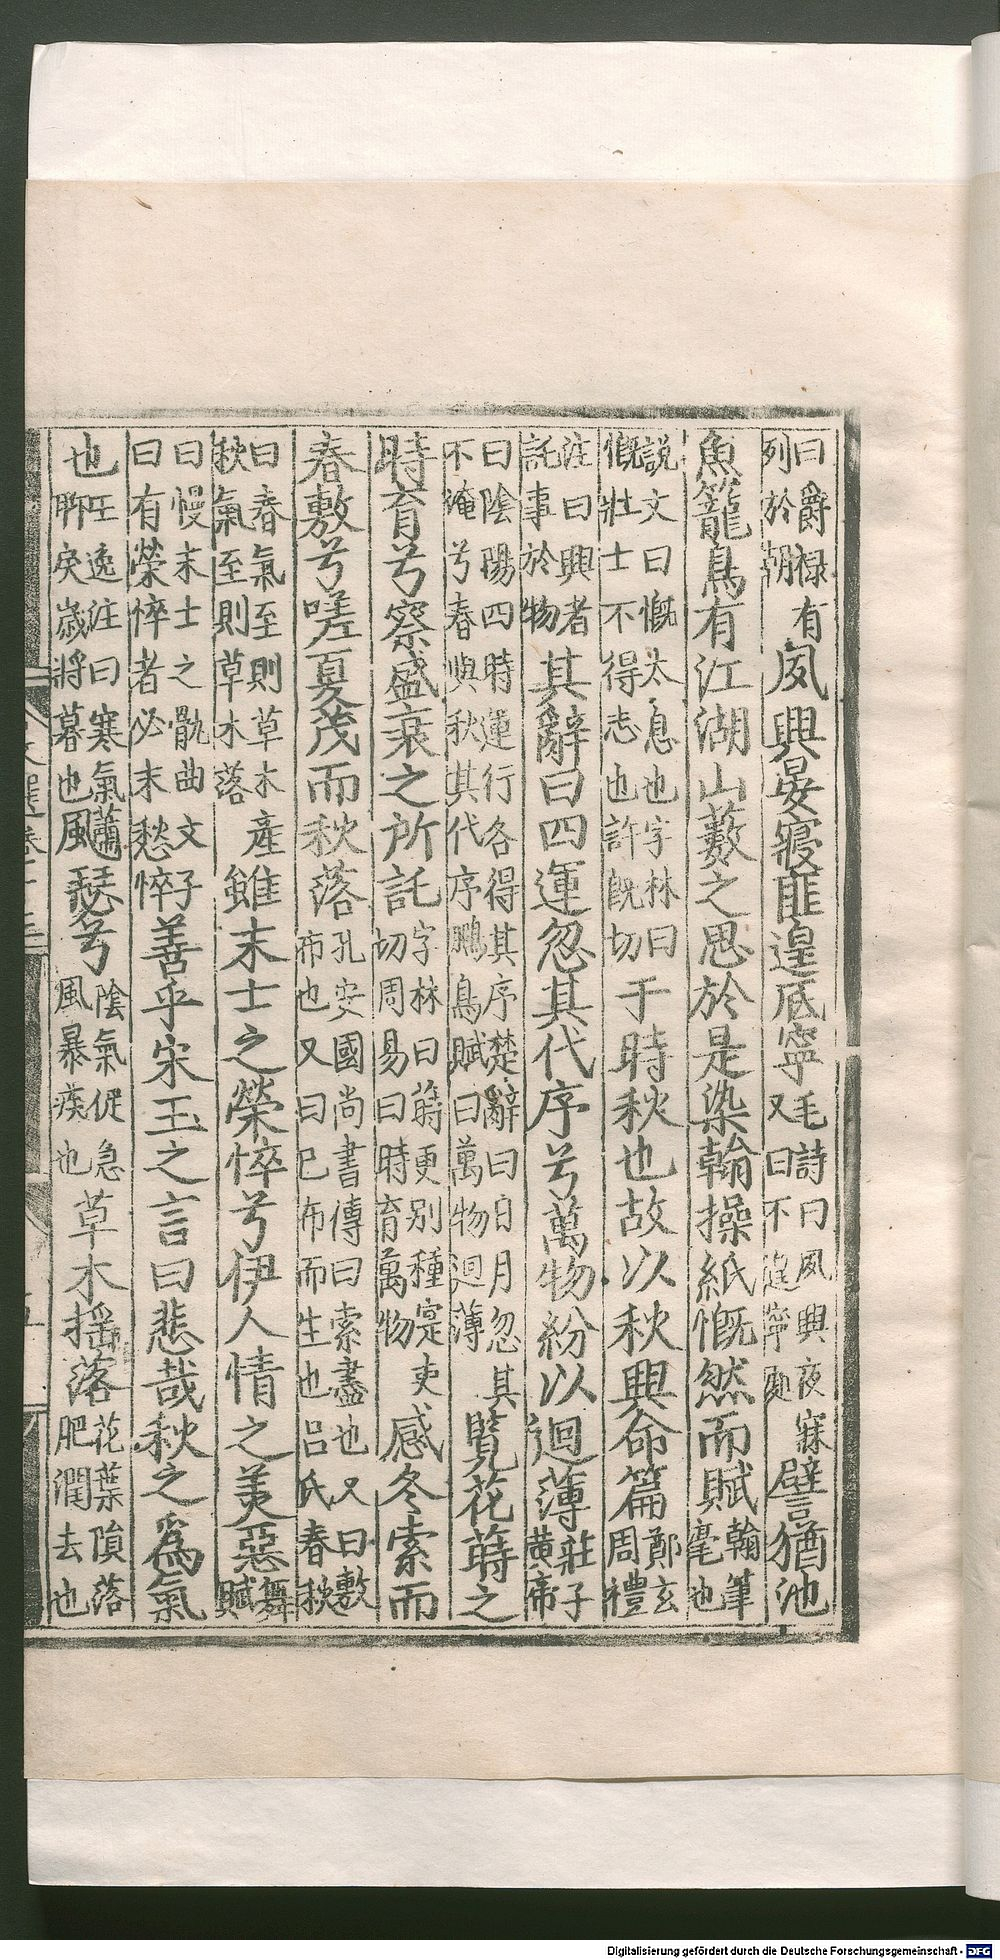 曰爵禄有列於朝夙興晏寢匪遑底寧毛詩曰夙興夜寐又曰不遑寧處譬猶池
魚籠鳥有江湖山藪之思於是染翰操紙慨然而賦翰筆毫也
説文曰慨太息也字林曰慨壯士不得志也許旣切于時秋也故以秋興命篇鄭玄周禮
注曰興者託事於物其辭曰四運忽其代序兮萬物紛以迴薄莊子黄帝
曰陰陽四時運行各得其序楚辭曰日月忽其不淹兮春與秋其代序鵩鳥賦曰萬物迴薄覽花蒔之
時育兮察盛衰之所託字林曰蒔更别種寔吏切周易曰時育萬物感冬索而
春敷兮嗟夏茂而秋落孔安國尚書傳曰索盡也又曰敷布也又曰已布而生也吕氏春秋
曰春氣至則草木產秋氣至則草木落雖末士之榮悴兮伊人情之美惡舞賦
曰慢末士之骩曲文子曰有榮悴者必末愁悴善乎宋玉之言曰悲哉秋之爲氣
也王逸注曰寒氣聊戾歲將暮也蕭瑟兮陰氣促急風暴疾也草木摇落花葉隕落肥潤去也
文選卷十三
Digitalisierung gefördert durch die Deutsche Forschungsgemeinschaft - DFG